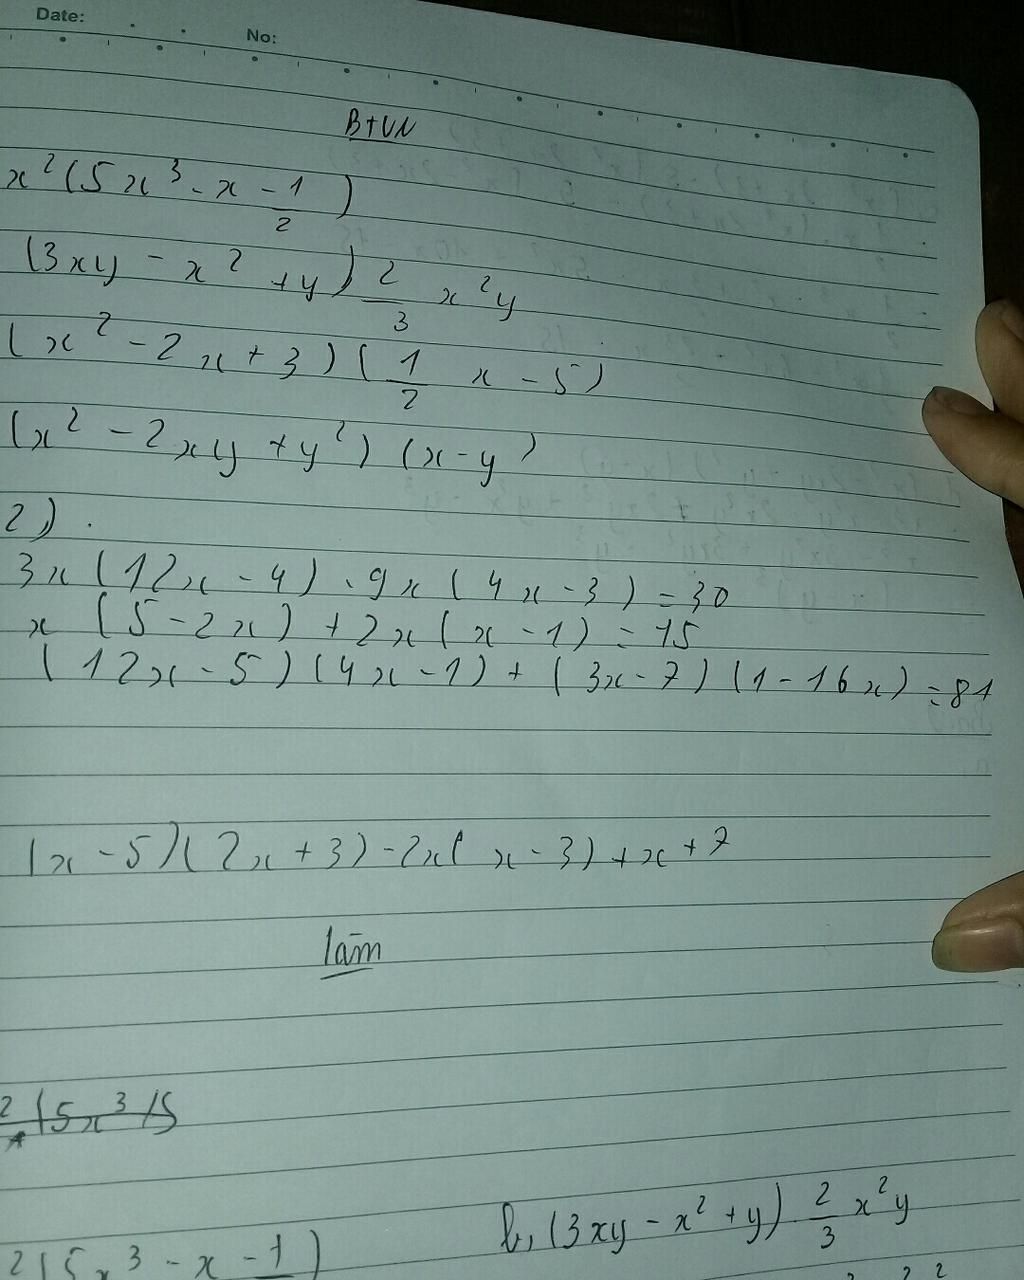 Date:
No:
BTVN
x²(5x³ - x - 1/2)
(3xy - x² + y) 2/3 x²y
(x² - 2x + 3)(1/2 x - 5)
(x² - 2xy + y²)(x - y)
2)
3x(12x - 4) - 9x(4x - 3) = 30
x(5 - 2x) + 2x(x - 1) = 15
(12x - 5)(4x - 1) + (3x - 7)(1 - 16x) = 81
(x - 5)(2x + 3) - 2x(x - 3) + x + 7
làm
²(5x³ - x - 1
b, (3xy - x² + y) 2/3 x²y